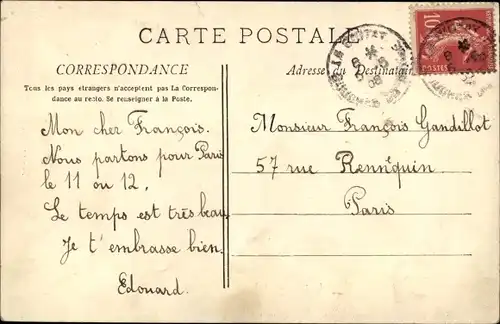 CARTE POSTALE
CORRESPONDANCE
Tous les pays étrangers n'acceptent pas La Correspon-
dance au recto. Se renseigner à la Poste.
Mon cher François.
Nous partons pour Paris
le 11 ou 12.
Le temps est très beau
Je t'embrasse bien.
Edouard.
Adresse du Destinataire
Monsieur François Gandillot
57 rue Rennequin
Paris
10
POSTES